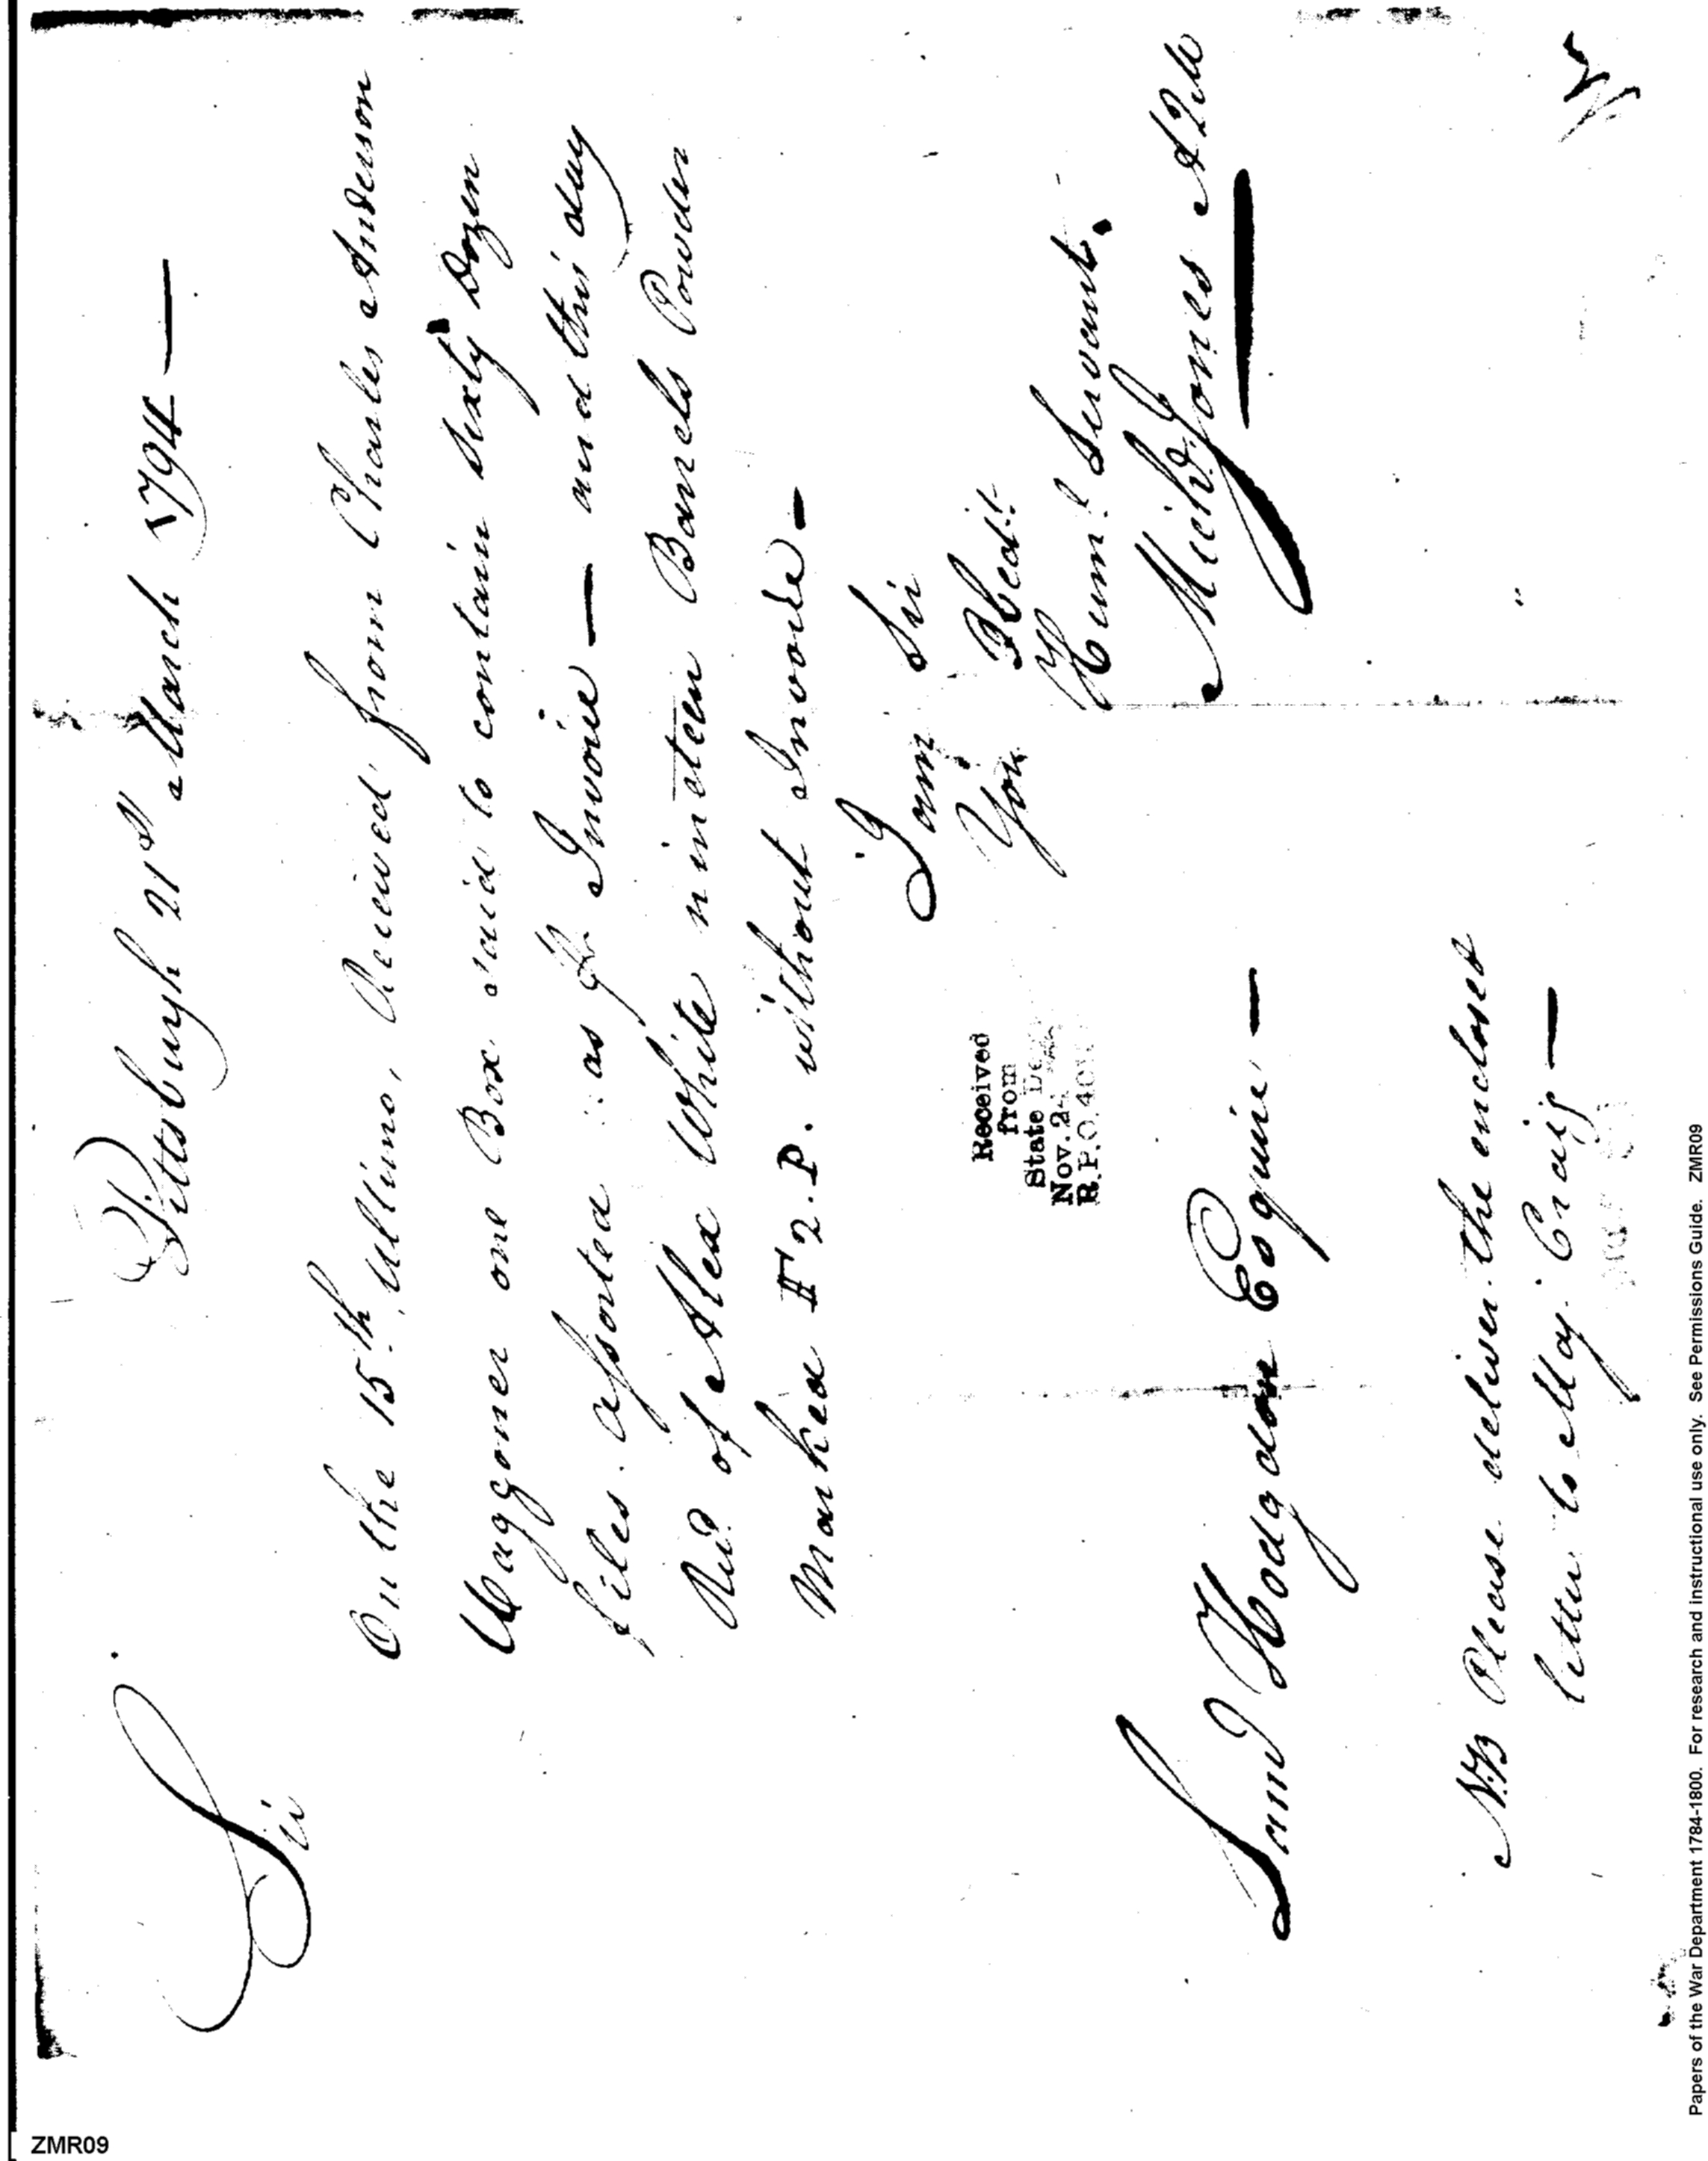 Pittsburgh 21st March 1794 —
Sir
On the 15th Ultimo, Received from Charles Anderson
Waggoner one Box said to contain Sixty Dozen
files assorted as Pr Invoice — and this day
Recd of Alex White nineteen Barrels Powder
Marked F 2. P. without Invoice —
I am Sir
Your Obedt
Huml Servant.
Richd Jones
Received
from
State
Nov. 24
R.P.O. 401
Saml Hodgdon Esquire —
N.B Please deliver the enclosed
letter to Maj. Craig —
ZMR09
Papers of the War Department 1784-1800. For research and instructional use only. See Permissions Guide. ZMR09